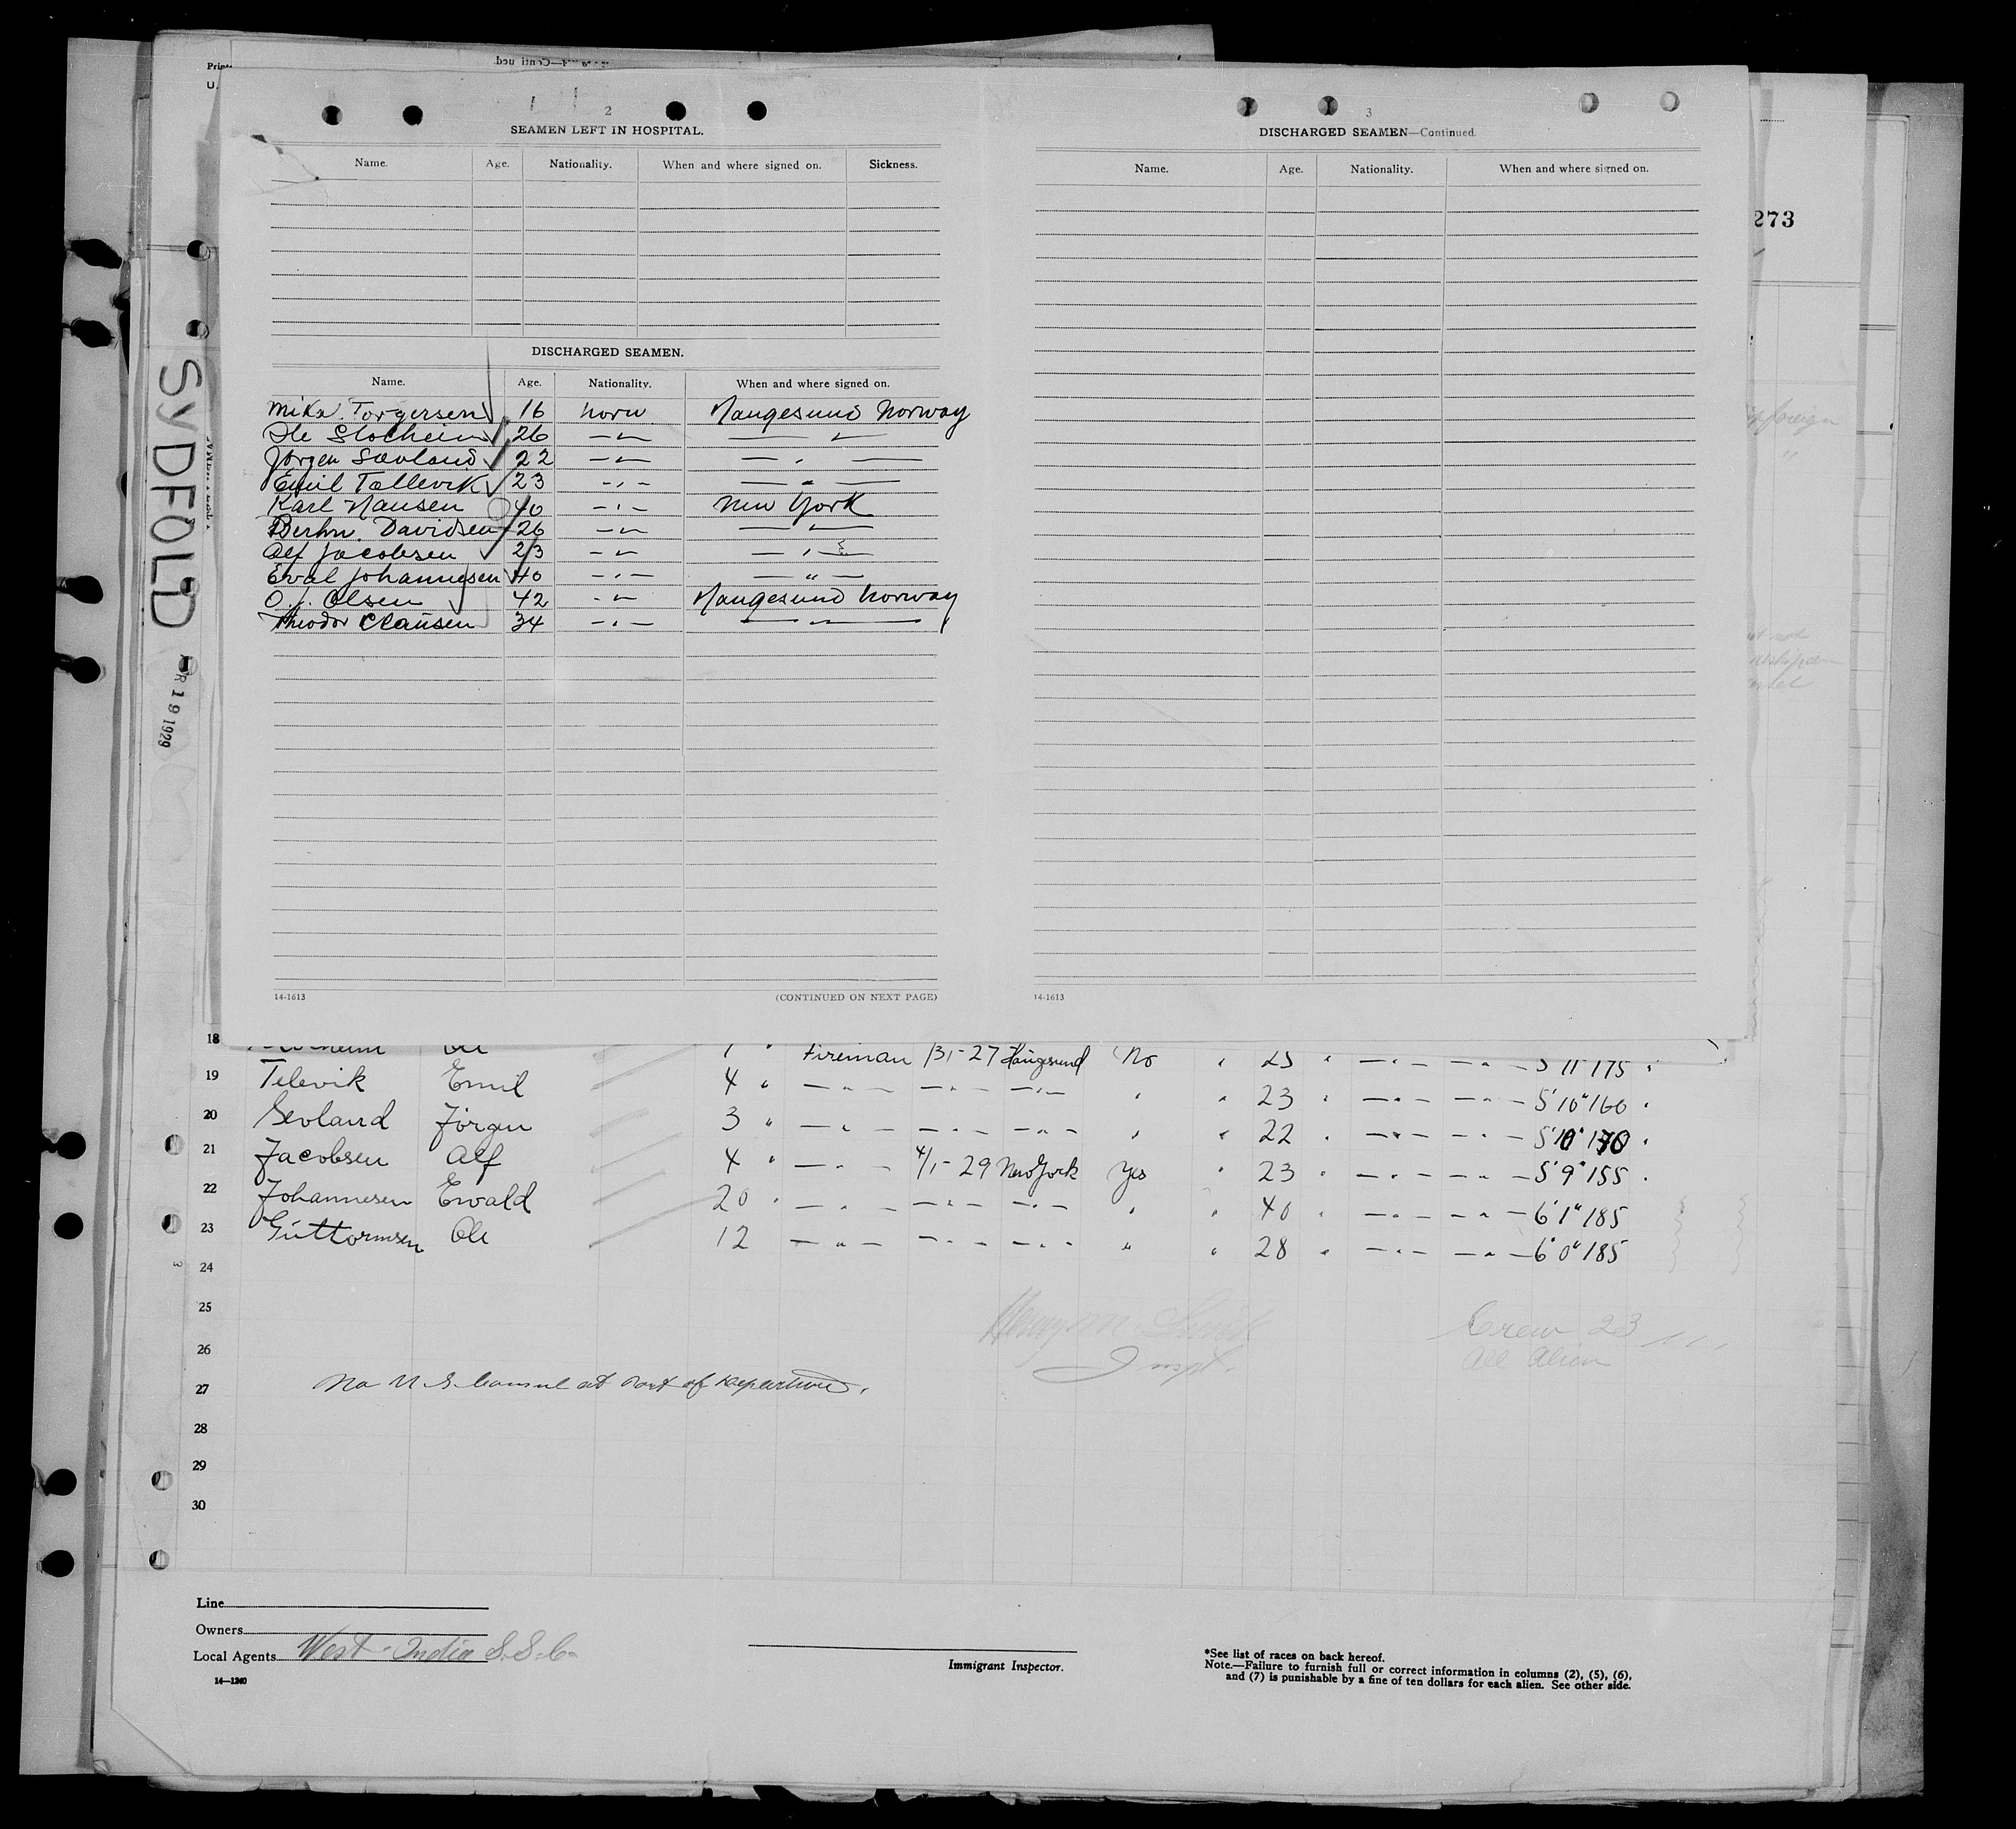 273
SYDFOLD
19 1929
2
SEAMEN LEFT IN HOSPITAL.
Name. Age. Nationality. When and where signed on. Sickness.
DISCHARGED SEAMEN.
Name. Age. Nationality. When and where signed on.
Mika. Torgersen 16 norw Haugesund Norway
Ole Stolheim 26 — " — — " —
Jörgen Sævland 22 — " — — " —
Emil Tallevik 23 — " — — " —
Karl Hansen 40 — " — New York
Berhn. Davidsen 26 — " — — " —
Alf Jacobsen 23 — " — — " —
Eval Johannesen 40 — " — — " —
O. J. Olsen 42 — " — Haugesund Norway
Theodor Clausen 34 — " — — " —
14-1613 (CONTINUED ON NEXT PAGE)
3
DISCHARGED SEAMEN—Continued.
Name. Age. Nationality. When and where signed on.
14-1613
18 Fireman /31-27 Haugesund No " 25 " — " — — " — 5'11" 175 "
19 Televik Emil 4 " — " — — " — — " — " " 23 " — " — — " — 5'10" 160 "
20 Sevland Jörgen 3 " — " — — " — — " — " " 22 " — " — — " — 5'10" 170 "
21 Jacobsen Alf 4 " — " — 4/1-29 New York Yes " 23 " — " — — " — 5'9" 155 "
22 Johannesen Ewald 20 " — " — — " — — " — " " 40 " — " — — " — 6'1" 185
23 Guttormsen Ole 12 — " — — " — — " — " " 28 " — " — — " — 6'0" 185
24
25
26
27 No U S Consul at Port of departure.
28
29
30
Insp.
Crew 23
All Alien
Line
Owners
Local Agents West India S.S. Co
14—1240
Immigrant Inspector.
*See list of races on back hereof.
Note.—Failure to furnish full or correct information in columns (2), (5), (6),
and (7) is punishable by a fine of ten dollars for each alien. See other side.